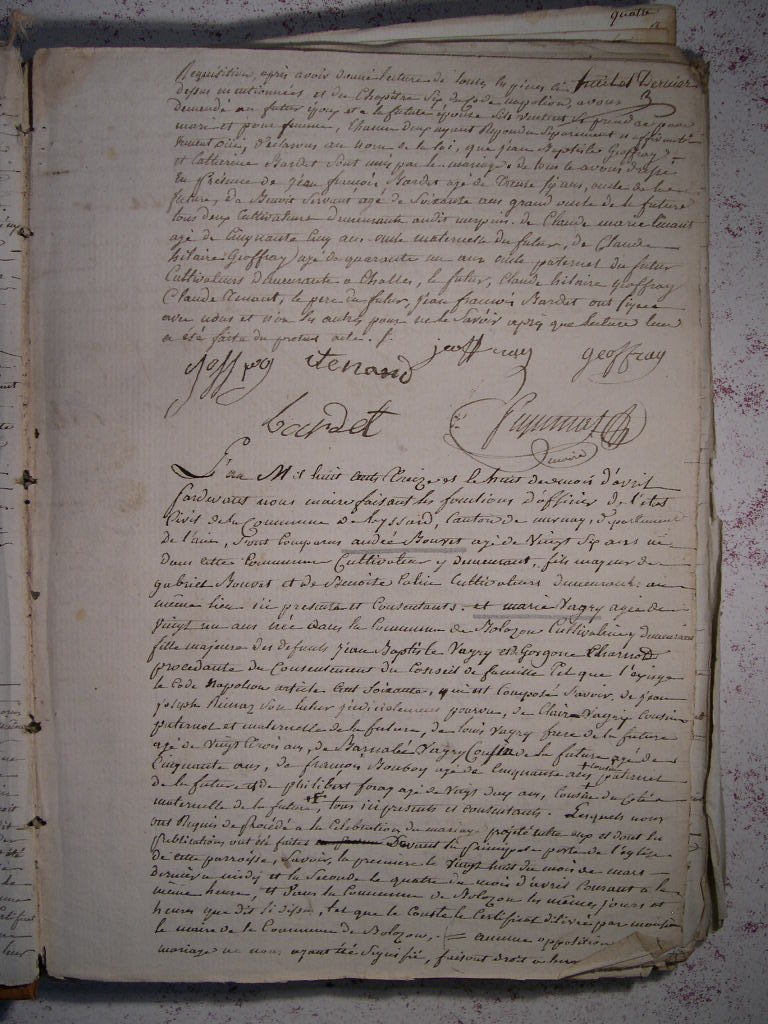 quatre
Requisition, après avoir donné lecture de toutes les pièces ci
dessus mentionnées et du Chapitre Six du Code napoléon, avons
demandé au futur époux et à la future épouse s'ils veulent se prendre pour
mari et pour femme, chacun d'eux ayant Repondu séparement et affirmati-
vement oui, déclarons au nom de la loi, que jean Baptiste Geoffray
et Catherine Bardet sont unis par le mariage, de tout ce avons dressé acte
En présence de jean françois Bardet agé de trente six ans, oncle de la
future, de Benoit agé de Soixante ans grand oncle de la future
tous deux Cultivateurs demeurants audit, de Claude marie
agé de Cinquante Cinq ans oncle maternel du futur, de Claude
hilaire Geoffray agé de quarante un ans oncle paternel du futur
Cultivateurs demeurants a Challes, le futur, Claude hilaire Geoffray
Claude, le pere du futur, jean francois Bardet ont signé
avec nous et non les autres pour ne le Savoir après que lecture leur
a été faite du présent acte.
joffray tenand jeoffray geoffray
bardet
maire
L'an Mil huit cents treize et le huit du mois d'avril
Pardevant nous maire faisant les fonctions d'officier de l'état
Civil de la Commune de Leyssard, Canton de, département
de l'ain, Sont Comparus andré Bouvet agé de Vingt Six ans né
dans cette Commune Cultivateur y demeurant, fils majeur de
gabriel Bouvet et de Benoite Cultivateurs demeurants au
même lieu ici présents et Consentants. et marie Vagry agée de
Vingt un ans née dans la Commune de Bolozon Cultivatrice y demeurant
fille majeure des defunts jean Baptiste Vagry et de Gorgone Charnod
procedante du Consentement du Conseil de famille tel que l'exige
le Code Napoléon article Cent Soixante, qui est Composé Savoir, de jean
joseph son tuteur judiciairement pourvu, de Claire Vagry Cousin
paternel et maternelle de la future, de louis Vagry frere de la future
agé de Vingt trois ans, de Barnabé Vagry Cousin de la future agé de
Cinquante ans, de françois Bouboy agé de Cinquante ans paternel
de la future et de philibert foray agé de Vingt deux ans, Cousin du Coté
maternelle de la future, tous ici présents et consentants. Lesquels nous
ont Requis de procédé a la Célébration du mariage projeté entre eux et dont les
publications ont été faites Devant la principale porte de l'église
de cette parroisse, Savoir, la premiere le Vingt huit du mois de mars
dernier a midy et la Seconde le quatre du mois d'avril Courant a la
même heure, et dans la Commune de Bolozon les mêmes jours et
heures que dit ci dessus, tel que le Constate le Certificat délivré par monsieur
le maire de la Commune de Bolozon, = aucune opposition
mariage ne nous ayant été Signifié, faisant droit a leur